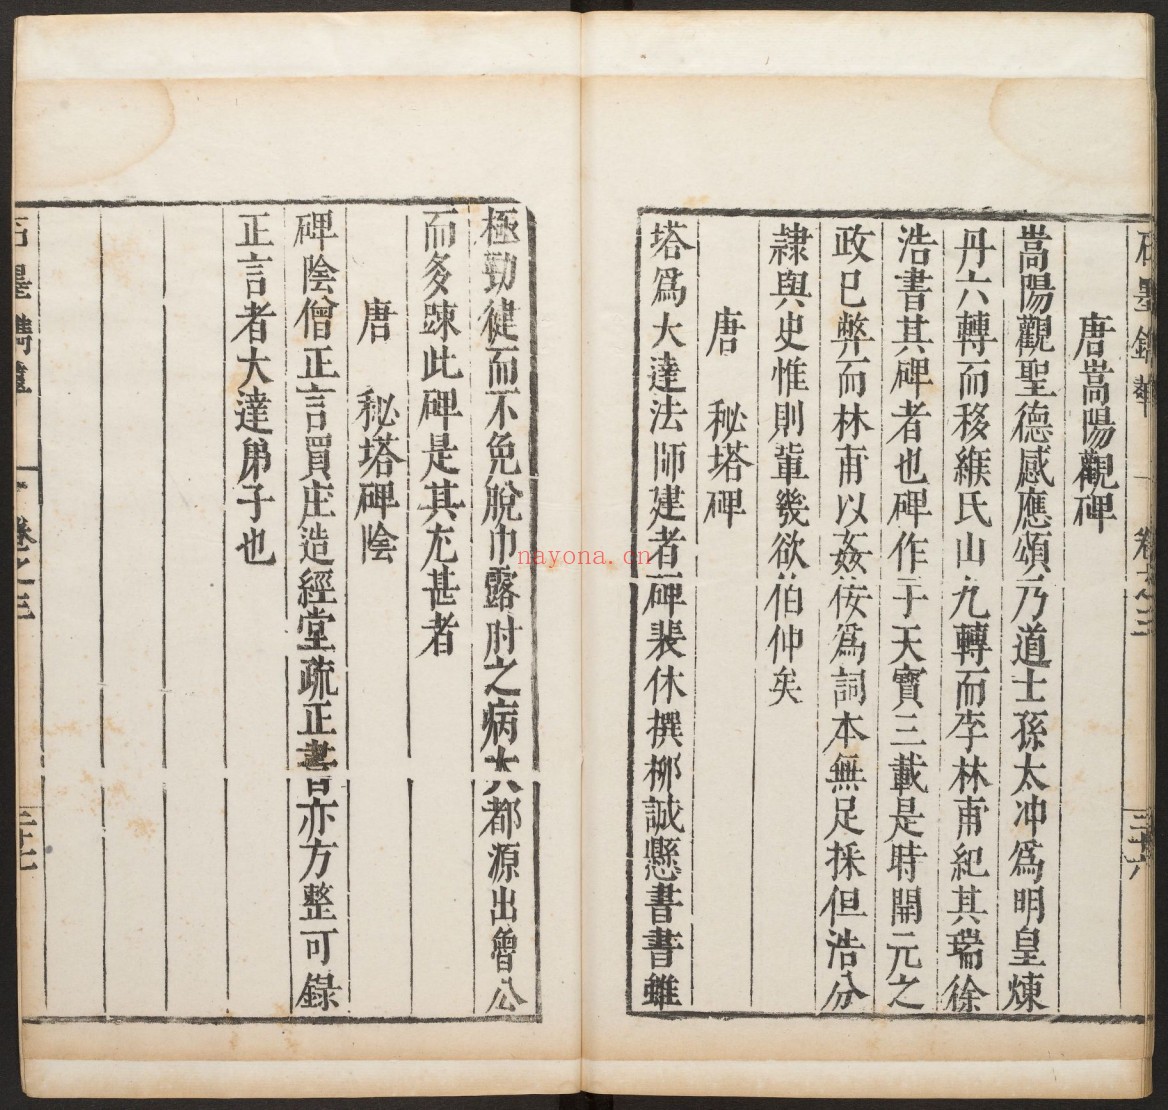 唐嵩陽觀碑
嵩陽觀聖德感應頌乃道士孫太冲爲明皇煉
丹六轉而移緱氏山九轉而李林甫紀其瑞徐
浩書其碑者也碑作于天寶三載是時開元之
政已弊而林甫以姦佞爲詞本無足採但浩分
隷與史惟則軰幾欲伯仲矣
唐 秘塔碑
塔爲大達法師建者碑裴休撰栁誠懸書書雖
極勁健而不免脫巾露肘之病大都源出魯公
而多踈此碑是其尤甚者
唐 秘塔碑陰
碑陰僧正言買庄造經堂疏正書亦方整可錄
正言者大達弟子也
石墨鐫華 卷之三 三十六
石墨鐫華 卷之三 三十七
nayona.cn